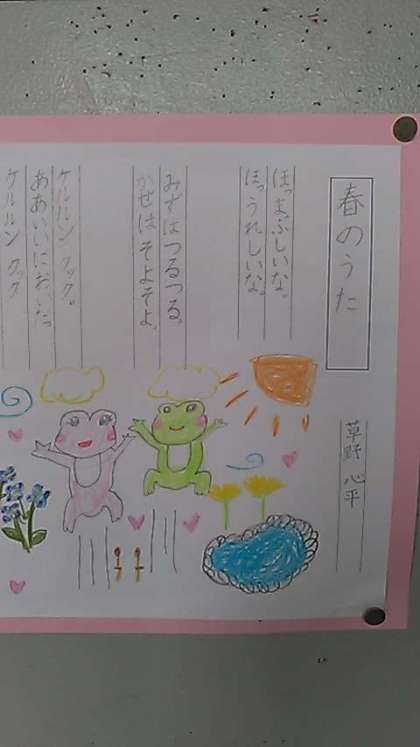 春のうた
草野 心平
ほっまぶしいな。
ほっうれしいな。
みずはつるつる。
かぜはそよそよ。
ケルルン クック。
ああいいにおいだっ
ケルルン クック